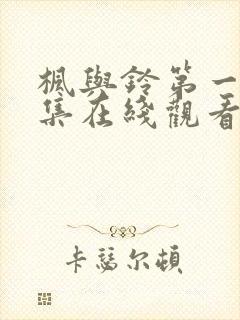 楓與鈴第一
集在綫觀看
卡瑟尔頓